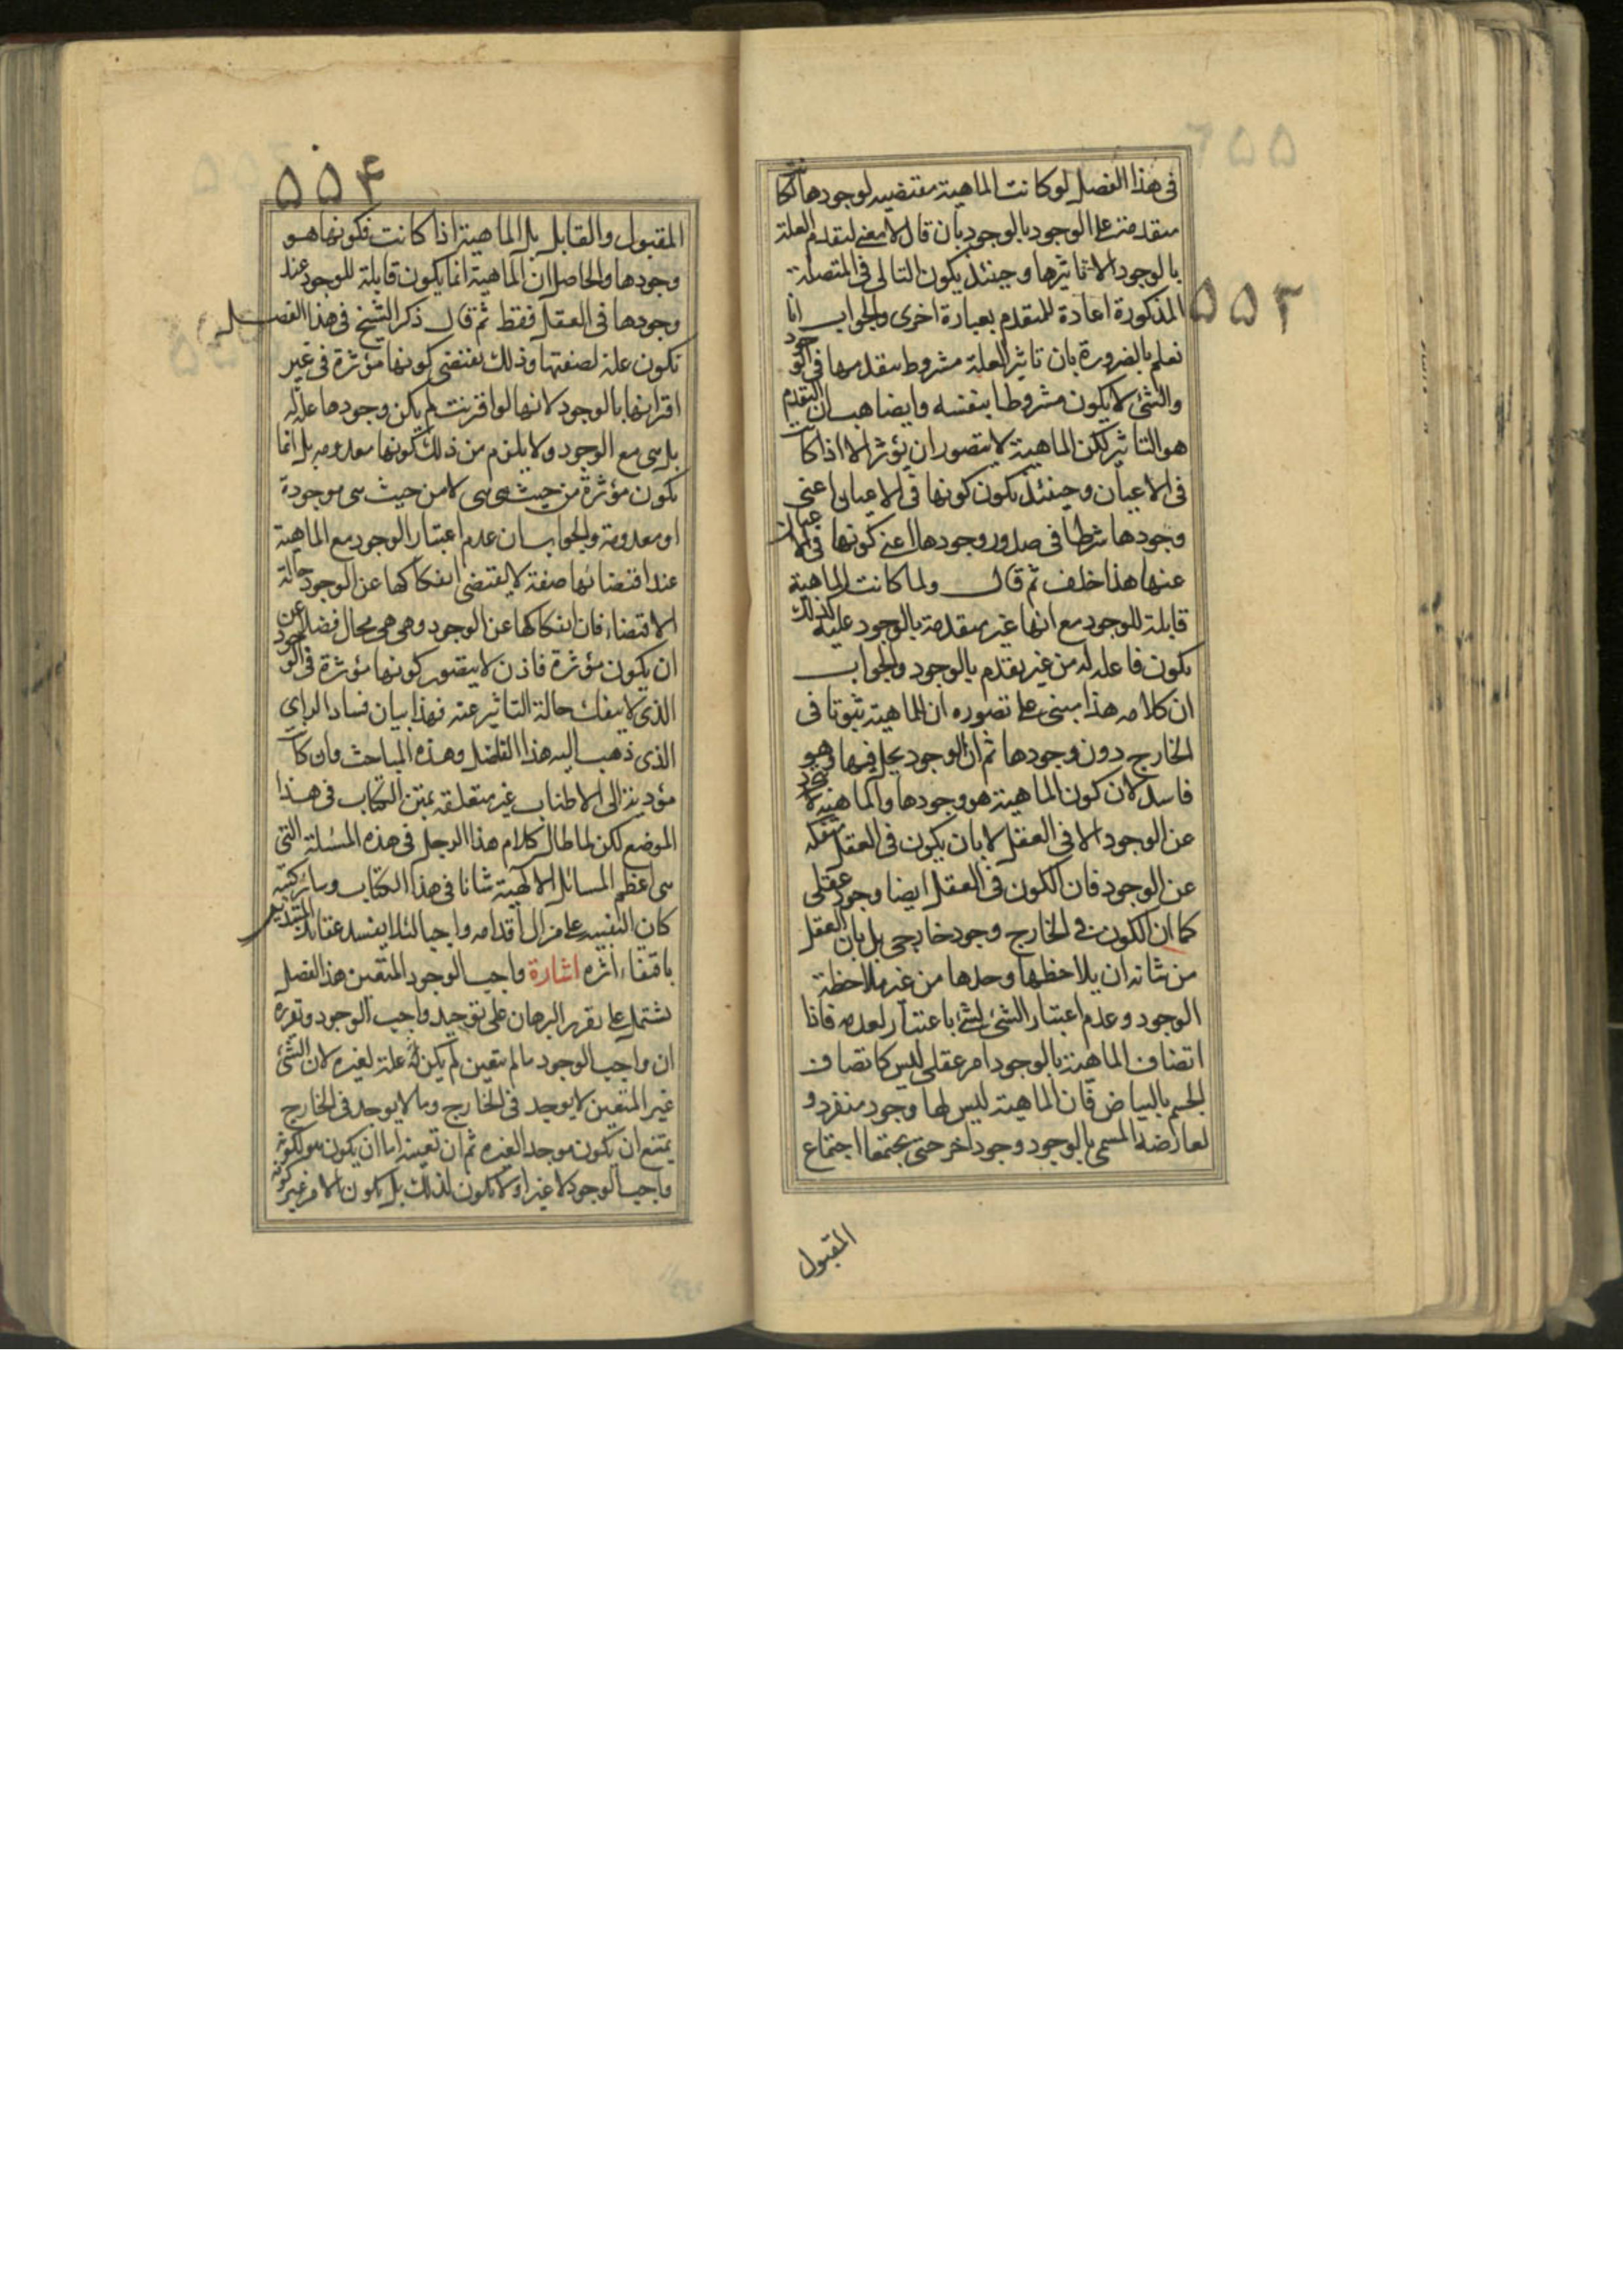 ٥٥٣
فى هذا الفصل لو كانت الماهية مقتضيه لوجودها لكانت
متقدمة على الوجود بالوجود بان قال لا معنى لتقدم العلة
بالوجود الا تاثيرها وحينئذ يكون التالى فى المتصلة
المذكورة اعادة للمتقدم بعبارة اخرى والجواب انا
نعلم بالضرورة بان تاثير العلة مشروط بتقدمها فى الوجود
والشئ لا يكون مشروطا بنفسه وايضا هب ان التقدم
هو التاثير لكن الماهية لا يتصور ان يؤثر الا اذا كانت
فى الاعيان وحينئذ يكون كونها فى الاعيان اعنى
وجودها شرطا فى صدور وجودها اعنى كونها فى الاعيان
عنها هذا خلف ثم قال ولما كانت الماهية
قابلة للوجود مع انها غير متقدمة بالوجود عليه كذلك
يكون فاعله له من غير تقدم بالوجود والجواب
ان كلامه هذا مبنى على تصوره ان للماهية ثبوتا فى
الخارج دون وجودها ثم ان الوجود يحل فيها وهو
فاسد لان كون الماهية هو وجودها والماهية لا تتجرد
عن الوجود الا فى العقل لا بان يكون فى العقل منفكه
عن الوجود فان الكون فى العقل ايضا وجود عقلى
كما ان الكون فى الخارج وجود خارجى بل بان العقل
من شانه ان يلاحظها وحدها من غير ملاحظة
الوجود وعدم اعتبار الشئ لشئ باعتبار لعدمه فاذا
اتصاف الماهية بالوجود امر عقلى ليس كاتصاف
الجسم بالبياض فان الماهية ليس لها وجود منفرد و
لعارضه المسمى بالوجود وجود اخر حتى يجتمعا اجتماع
المقبول
٥٥٤
المقبول والقابل بل الماهية اذا كانت فكونها هو
وجودها والحاصل ان الماهية انما يكون قابلة للوجود عند
وجودها فى العقل فقط ثم قال ذكر الشيخ فى هذا الفصل
تكون علة لصفتها وذلك يقتضى كونها مؤثرة فى غير
اقترانها بالوجود لانها لو اقترنت لم يكن وجودها علة له
بل هى مع الوجود ولا يلزم من ذلك كونها معدومه بل انما
يكون مؤثرة من حيث هى هى لا من حيث هى موجودة
او معدومة والجواب ان عدم اعتبار الوجود مع الماهية
عند اقتضائها صفة لا يقتضى انفكاكها عن الوجود حالة
الاقتضاء فان انفكاكها عن الوجود وهى هى محال فضلا عن
ان يكون مؤثرة فاذن لا يتصور كونها مؤثرة فى الوجود
الذى لا ينفك حالة التاثير عنه فهذا بيان فساد الراى
الذى ذهب اليه هذا الفاضل وهذه المباحث وان كانت
مؤدية الى الاطناب غير متعلقه بمتن الكتاب فى هذا
الموضع لكن لما طال كلام هذا الرجل فى هذه المسئلة التى
هى اعظم المسائل الالهية شانا فى هذا الكتاب وسائر كتبه
كان التنبيه على مزال اقدامه واجبا لئلا يفسد عقائد المبتدئين
باقتفاء اثره اشارة واجب الوجود المتعين هذا الفصل
يشتمل على تقرير البرهان على توحيد واجب الوجود وتقريره
ان واجب الوجود ما لم يتعين لم يكن علة لغيره لان الشئ
غير المتعين لا يوجد فى الخارج وما لا يوجد فى الخارج
يمتنع ان يكون موجدا لغيره ثم ان تعينه اما ان يكون هو لكونه
واجب الوجود لا غير او لا يكون لذلك بل يكون لامر غير كونه